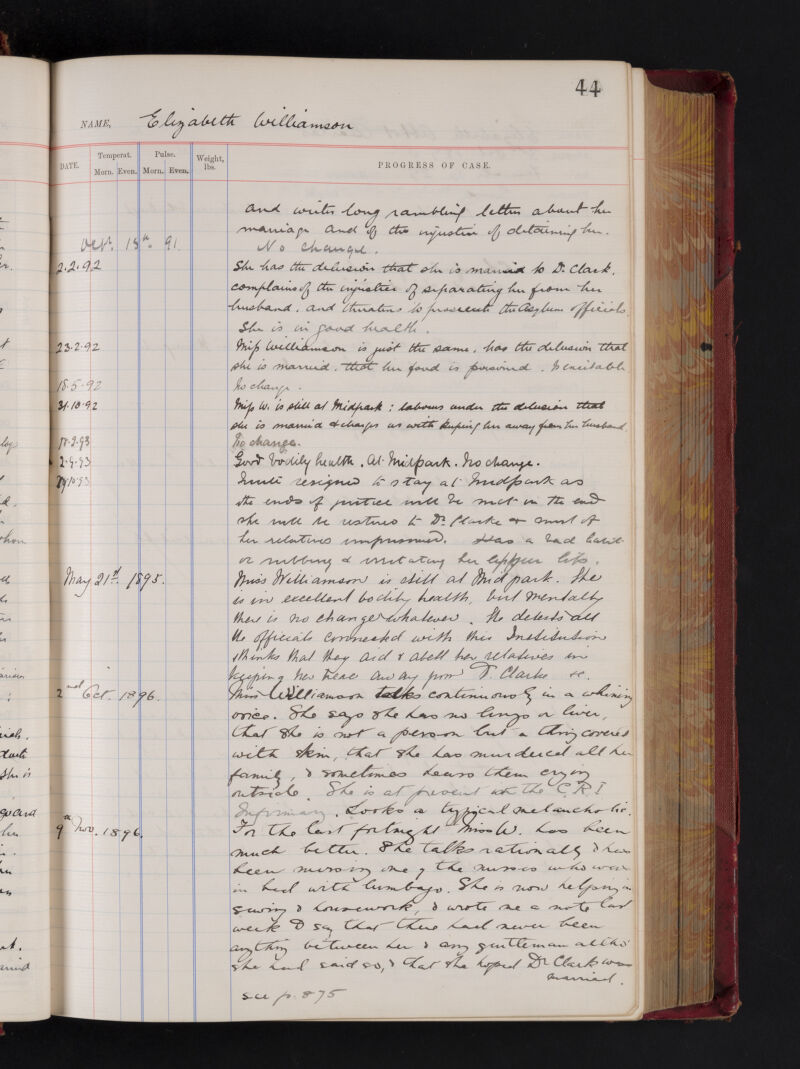 44
NAME, Elizabeth Williamson
DATE. Temperat. Pulse. Weight, lbs. PROGRESS OF CASE.
Morn. Even. Morn. Even.
and writes long rambling letters about her
marriage and of the injustice of detaining her.
Oct. 15th. 91. No change.
2.2.92 She has the delusion that she is married to Dr. Clark,
complains of the injustice of separating her from her
husband, and threatens to prosecute the asylum officials.
She is in good health.
23.2.92 Miss Williamson is just the same, has the delusion that
she is married, that her food is poisoned. Is excitable
18.5.92 No change.
31.10.92 Miss W. is still at Midpark; labours under the delusion that
she is married & charges us with keeping her away from her husband.
2.93 No change.
2.9.93 Good bodily health. At Midpark. No change.
10.93 Quite resigned to stay at Midpark as
the ends of justice will be met in the end
she will be restored to Dr. Clarke & most of
her relatives imprisoned. Has a bad habit
of rubbing & irritating her upper lips.
May 21st. 1895. Miss Williamson is still at Midpark. She
is in excellent bodily health, but mentally
there is no change whatever. She detests all
the officials connected with this Institution
& thinks that they aid & abett her relatives in
keeping her here away from Dr. Clarke &c.
2nd Oct. 1896. Miss Williamson talks continuously in a whining
voice. She says she has no lungs or liver,
that she is not a person but a thing covered
with skin, that she has murdered all her
family, & sometimes hears them crying
outside. She is at present in the C.R.I
Infirmary. Looks a typical melancholic.
9th Nov. 1896. For the last fortnight Miss W. has been
much better. She talks rationally & has
been nursing one of the nurses who was
in bed with lumbago. She is now helping in
sewing & housework, & wrote me a note last
week to say that there had never been
anything between her & any gentleman altho'
she had said so, & that she hoped Dr Clark was
married.
see p. 875